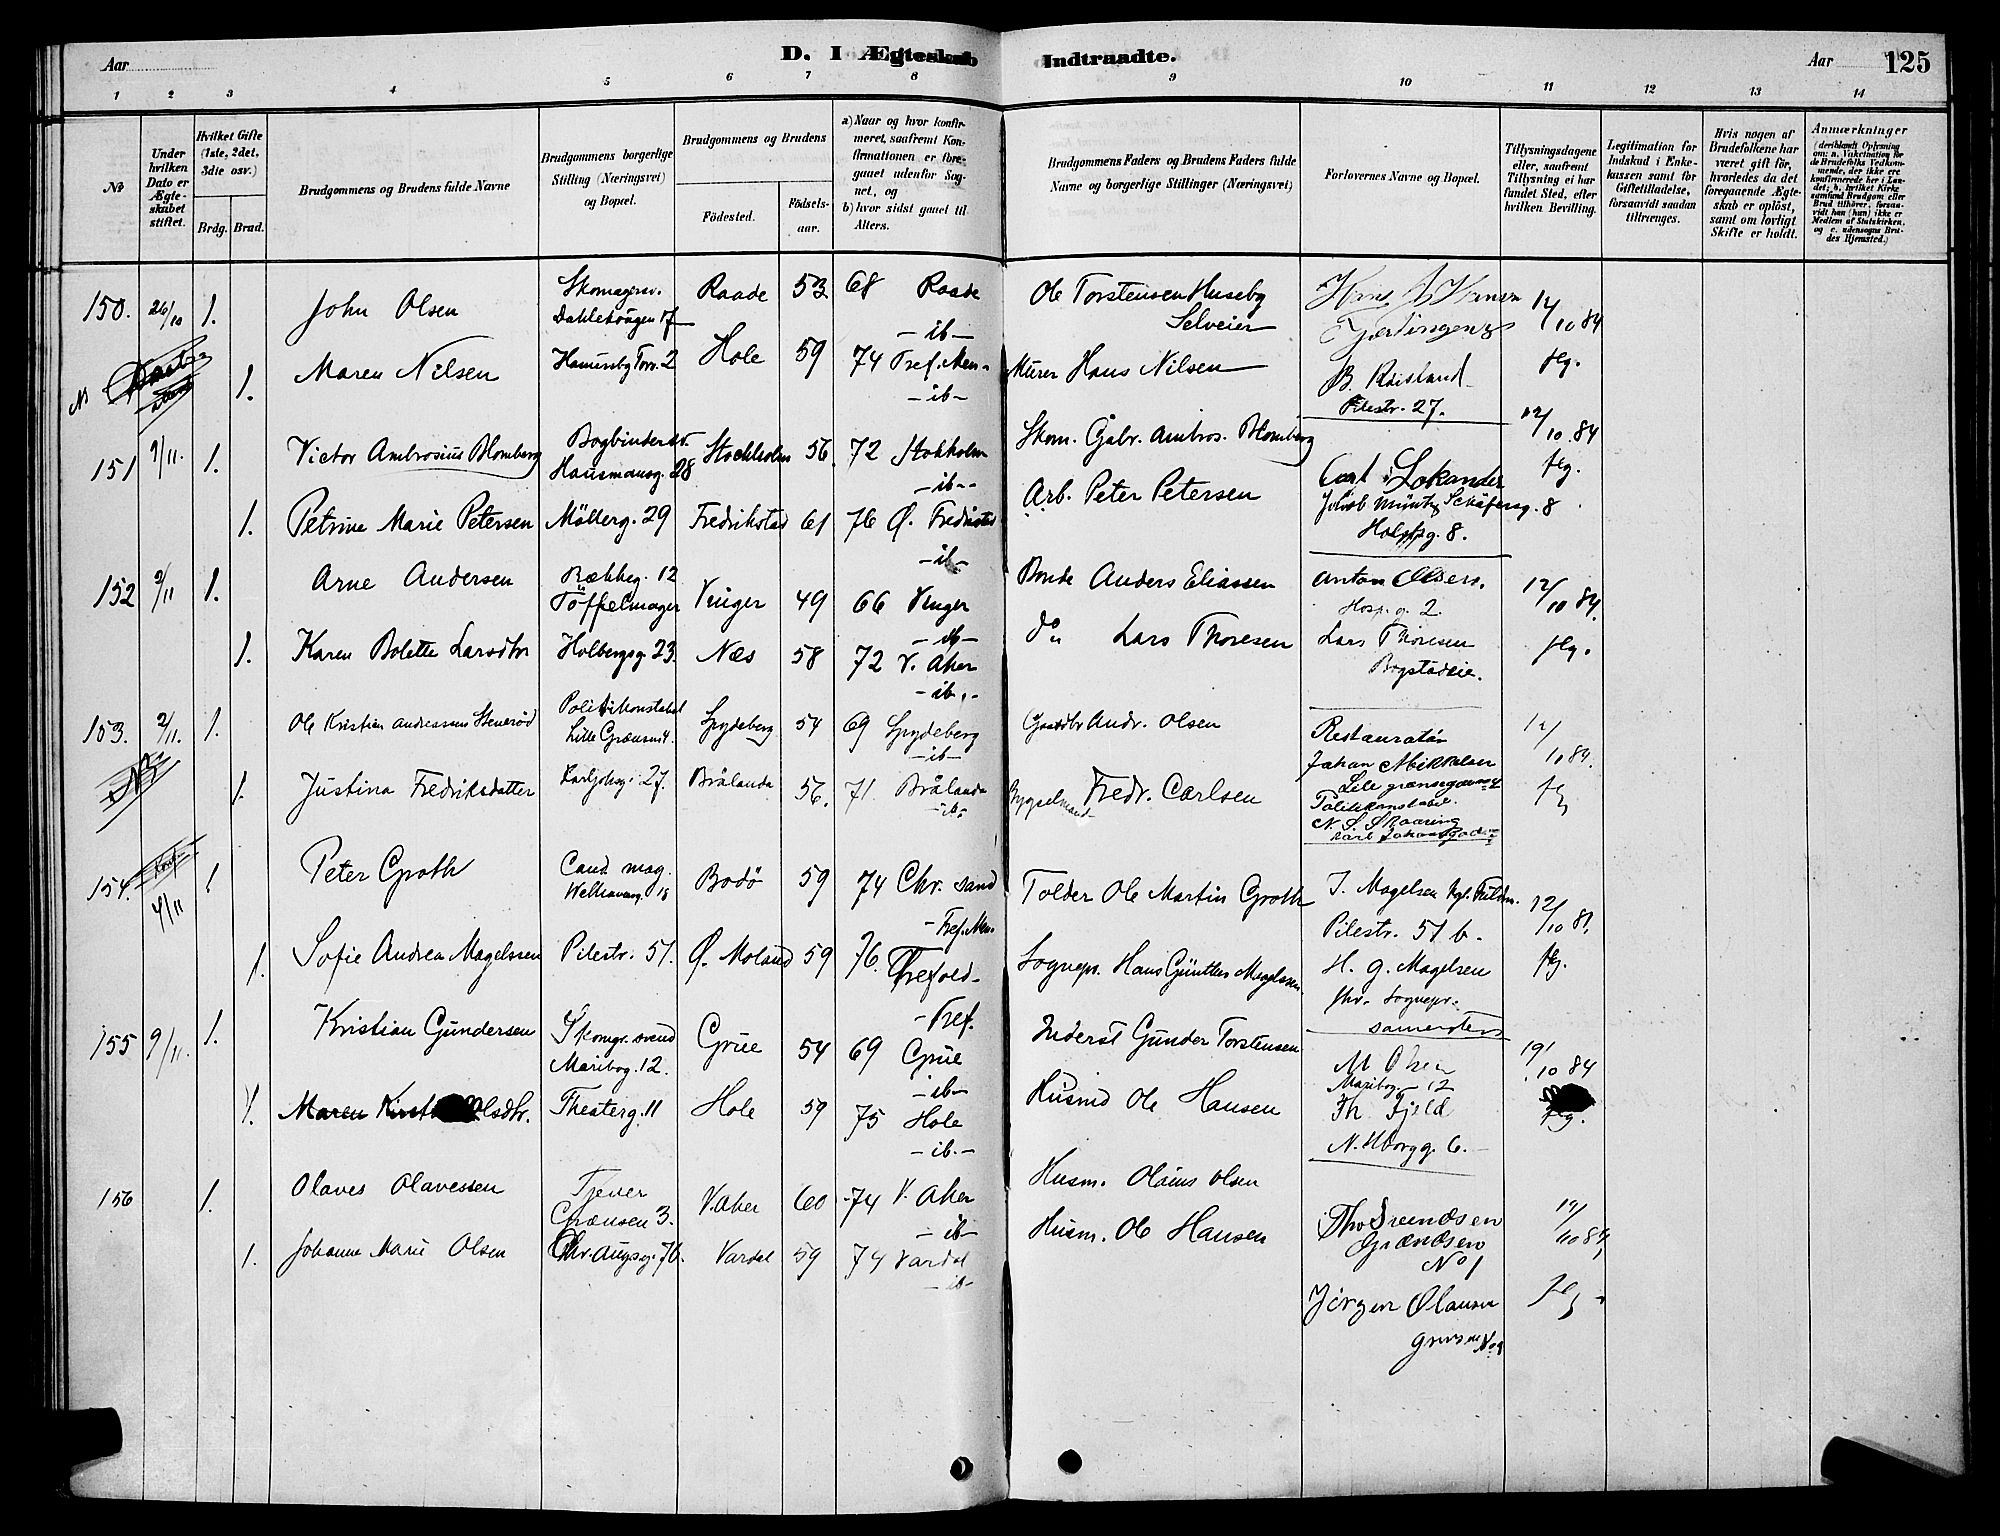 D. I Ægteskab Indtraadte.
Aar
Aar
125
1 2 3 4 5 6 7 8 9 10 11 12 13 14
No
Under hvilken Dato er Ægteskabet stiftet.
Hvilket Gifte (1ste, 2det, 3die osv.)
Brdg. Brud.
Brudgommens og Brudens fulde Navne
Brudgommens borgerlige Stilling (Næringsvei) og Bopæl.
Brudgommens og Brudens
Fødested.
Fødselsaar.
a) Naar og hvor konfirmeret, saafremt Konfirmationen er foregaaet udenfor Sognet, og
b) hvor sidst gaaet til Alters.
Brudgommens Faders og Brudens Faders fulde Navne og borgerlige Stillinger (Næringsvei)
Forlovernes Navne og Bopæl.
Tillysningsdagene eller, saafremt Tillysning ei har fundet Sted, efter hvilken Bevilling.
Legitimation for Indskud i Enkekassen samt for Giftetilladelse, forsaavidt saadan tiltrænges.
Hvis nogen af Brudefolkene har været gift før, hvorledes da det foregaaende Ægteskab er opløst, samt om lovligt Skifte er holdt.
Anmærkninger (deriblandt Oplysning om: a. Vakcination for de Brudefolks Vedkommende, der ikke ere konfirmerede her i Landet; b. hvilket Kirkesamfund Brudgom eller Brud tilhører, forsaavidt han (hun) ikke er Medlem af Statskirken. og c. udensogns Brudes Hjemsted.)
150. 26/10 1. John Olsen Skomagersv. Raade 53 68 Raade Ole Torstensen Huseby
Dahlehougen 17 -ib- Selveier 10 84
1. Maren Nilsen Hammersbg Torv. 2 Hole 59 74 Tref. Men. Murer Hans Nilsen flg.
-ib- Pilestr. 27.
151 1. Victor Ambrosius Blomberg Bogbindersv. Stockholm 56. 72 Stokholm Skom. Gabr. Ambros. Blomberg 12/10.84
Hausmansg. 28 -ib- Carl Lokander flg.
1. Petrine Marie Petersen Möllerg. 29 Fredrikstad 61 76 Ø. Fredrikstad Arb. Peter Petersen
-ib- 8.
152 2/11 1. Arne Andersen Rækkeg. 12 Vinger 49 66 Vinger Bonde Anders Eliassen Anton Olsen. 12/10 84.
Töffelmager -ib- Hosp. g. 2.
1. Karen Bolette Larsdtr Holbergsg 23. Næs 58 72 V. Aker do Lars Thoresen Lars Thoresen flg.
-ib- Bogstadveie.
153. 2/11. 1. Ole Kristian Andreassen Stenerød Politikonstabel Spydeberg 54 69 Spydeberg Gaardbr Andr. Olsen Restauratør 10 84.
Lille Grænsen 4. -ib- Johan Mikkelsen
NB
1. Justina Fredriksdatter Karljohsg. 27. Brålanda 56. 71. Brålanda Fredr. Carlsen
-ib- Politikonstabel.
154. 4/11 1 Peter Groth Cand mag. Bodø 59 74 Chr. sand Tolder Ole Martin Groth J. Magelsen 12/10 8
Welhavensg 18 -Tref. Men. Pilestr. 51 b.
1. Sofie Andrea Magelssen Pilestr. 51. Ø. Moland 59 76. Trefold- Sognepr. Hans Günther Magelssen H. G. Magelsen flg.
-Tref. Sognepr.
155 9/11. 1. Kristian Gundersen Skomgr. svend Grue 54 69 Grue Inderst Gunder Torstensen M Olsen 10 84
Maribog. 12. -ib- Maribog. 12
1. Maren Olsdtr. Theaterg. 11 Hole 59 75 Hole Husmd Ole Hansen Th Fjeld flg.
-ib.- 6.
156 1. Olaves Olavessen Tjener V. Aker 60 74 V. Aker Husm. Olaus Olsen
Grænsen 3. -ib- 10 84
1. Johanne Marie Olsen Chr. Augsg. 7b. Vardal 59 74 Vardal Husm. Ole Hansen Grændsen
-ib- No 1
Jörgen Olausen